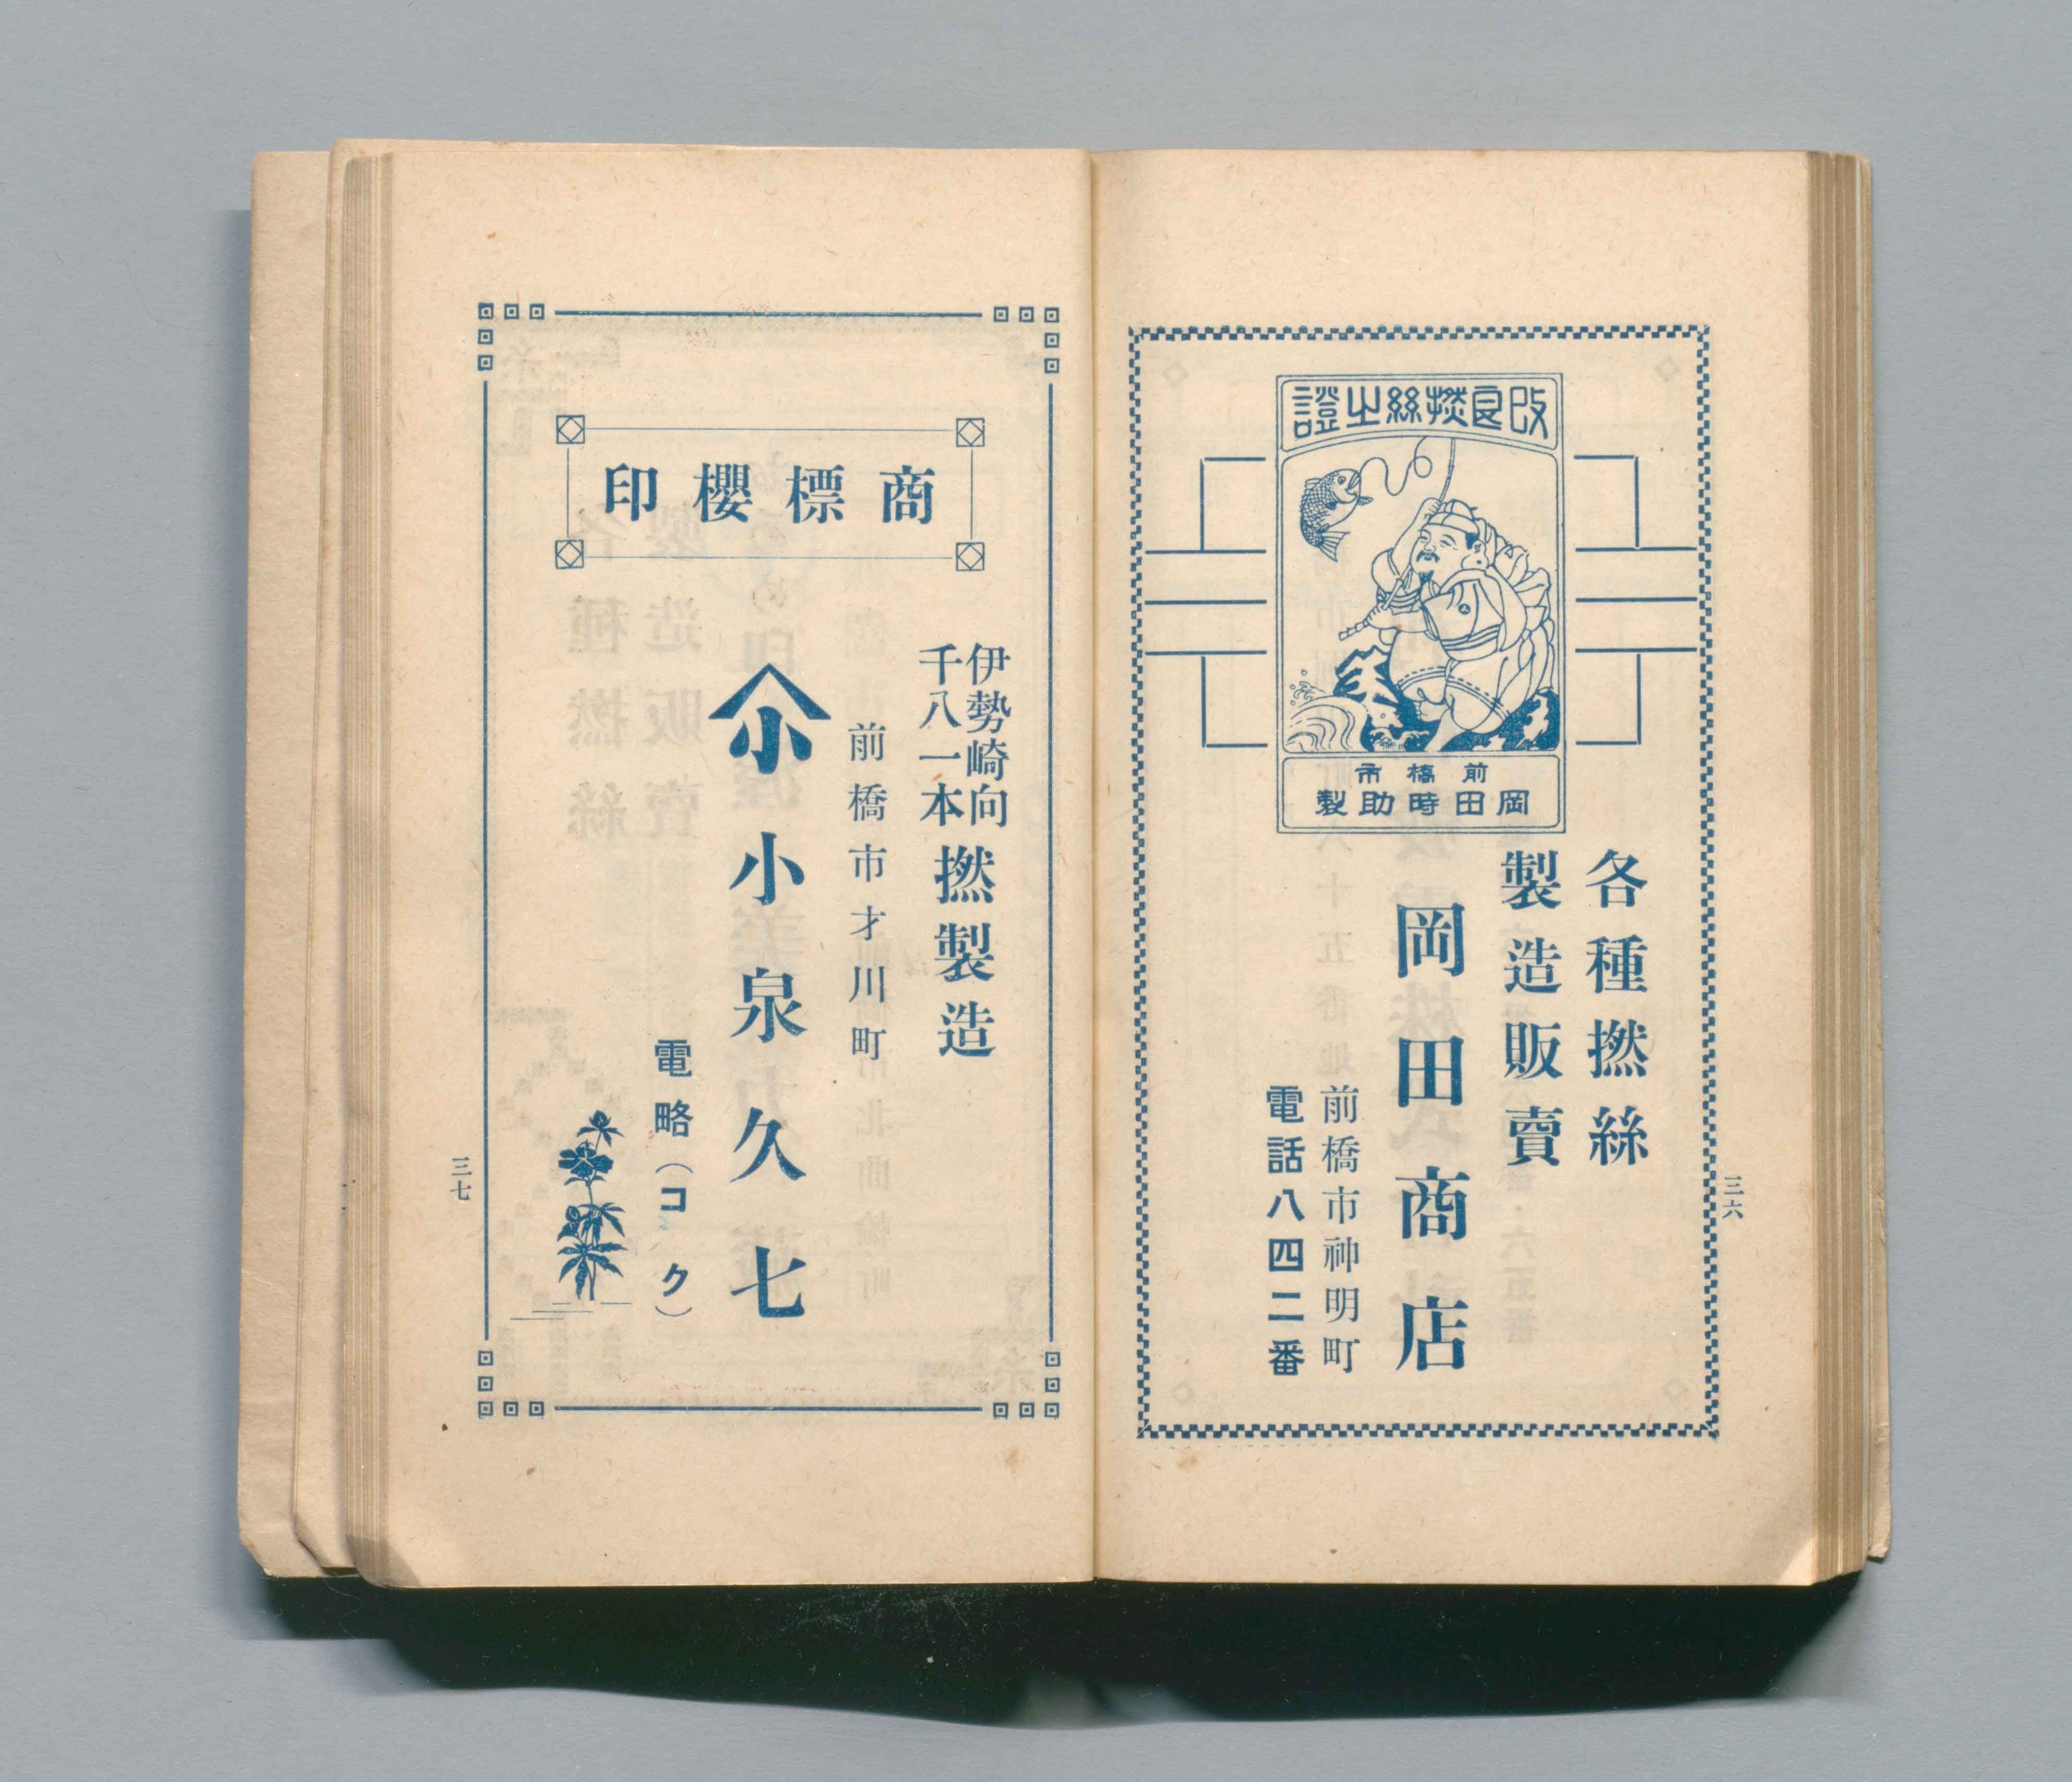 改良撚絲之證
前橋市
岡田時助製
各種撚絲
製造販賣
岡田商店
前橋市神明町
電話八四二番
三六
商標櫻印
伊勢崎向
千八一本
撚製造
前橋市才川町
小
小泉久七
電略(コク)
三七